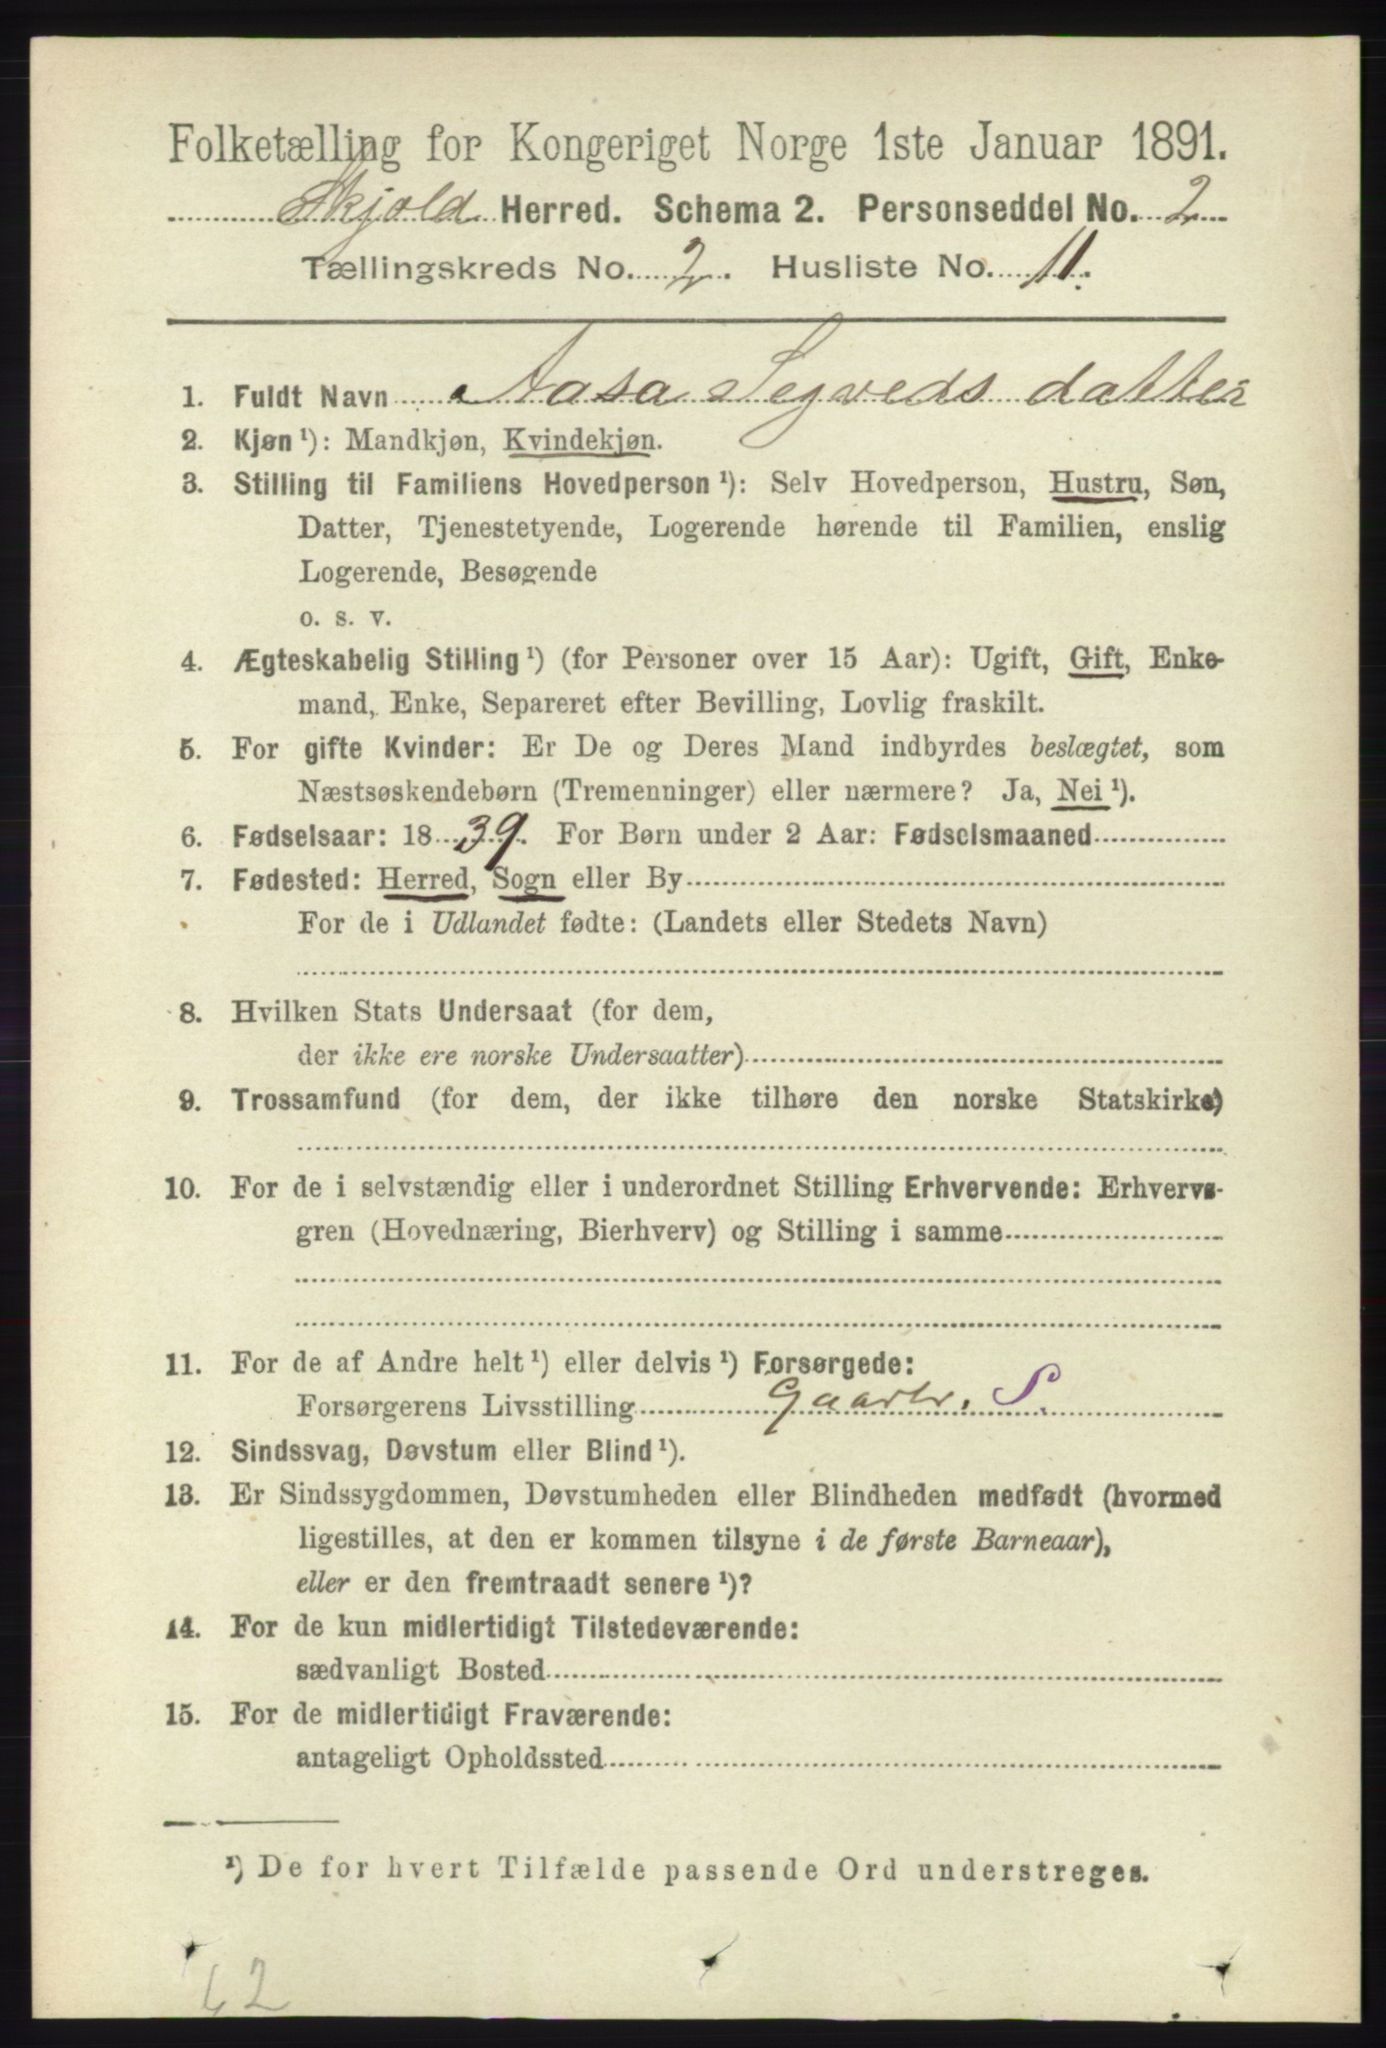 Folketælling for Kongeriget Norge 1ste Januar 1891.
Skjold Herred. Schema 2. Personseddel No. 2
Tællingskreds No. 2. Husliste No. 11.
1. Fuldt Navn Aasa Segveds datter
2. Kjøn ¹): Mandkjøn, Kvindekjøn.
3. Stilling til Familiens Hovedperson ¹): Selv Hovedperson, Hustru, Søn,
Datter, Tjenestetyende, Logerende hørende til Familien, enslig
Logerende, Besøgende
o. s. v.
4. Ægteskabelig Stilling ¹) (for Personer over 15 Aar): Ugift, Gift, Enke-
mand, Enke, Separeret efter Bevilling, Lovlig fraskilt.
5. For gifte Kvinder: Er De og Deres Mand indbyrdes beslægtet, som
Næstsøskendebørn (Tremenninger) eller nærmere? Ja, Nei ¹).
6. Fødselsaar: 1839. For Børn under 2 Aar: Fødselsmaaned
7. Fødested: Herred, Sogn eller By
For de i Udlandet fødte: (Landets eller Stedets Navn)
8. Hvilken Stats Undersaat (for dem,
der ikke ere norske Undersaatter)
9. Trossamfund (for dem, der ikke tilhøre den norske Statskirke)
10. For de i selvstændig eller i underordnet Stilling Erhvervende: Erhvervs-
gren (Hovednæring, Bierhverv) og Stilling i samme
11. For de af Andre helt ¹) eller delvis ¹) Forsørgede:
Forsørgerens Livsstilling Gaarbr. S.
12. Sindssvag, Døvstum eller Blind ¹).
13. Er Sindssygdommen, Døvstumheden eller Blindheden medfødt (hvormed
ligestilles, at den er kommen tilsyne i de første Barneaar),
eller er den fremtraadt senere ¹)?
14. For de kun midlertidigt Tilstedeværende:
sædvanligt Bosted
15. For de midlertidigt Fraværende:
antageligt Opholdssted
¹) De for hvert Tilfælde passende Ord understreges.
62